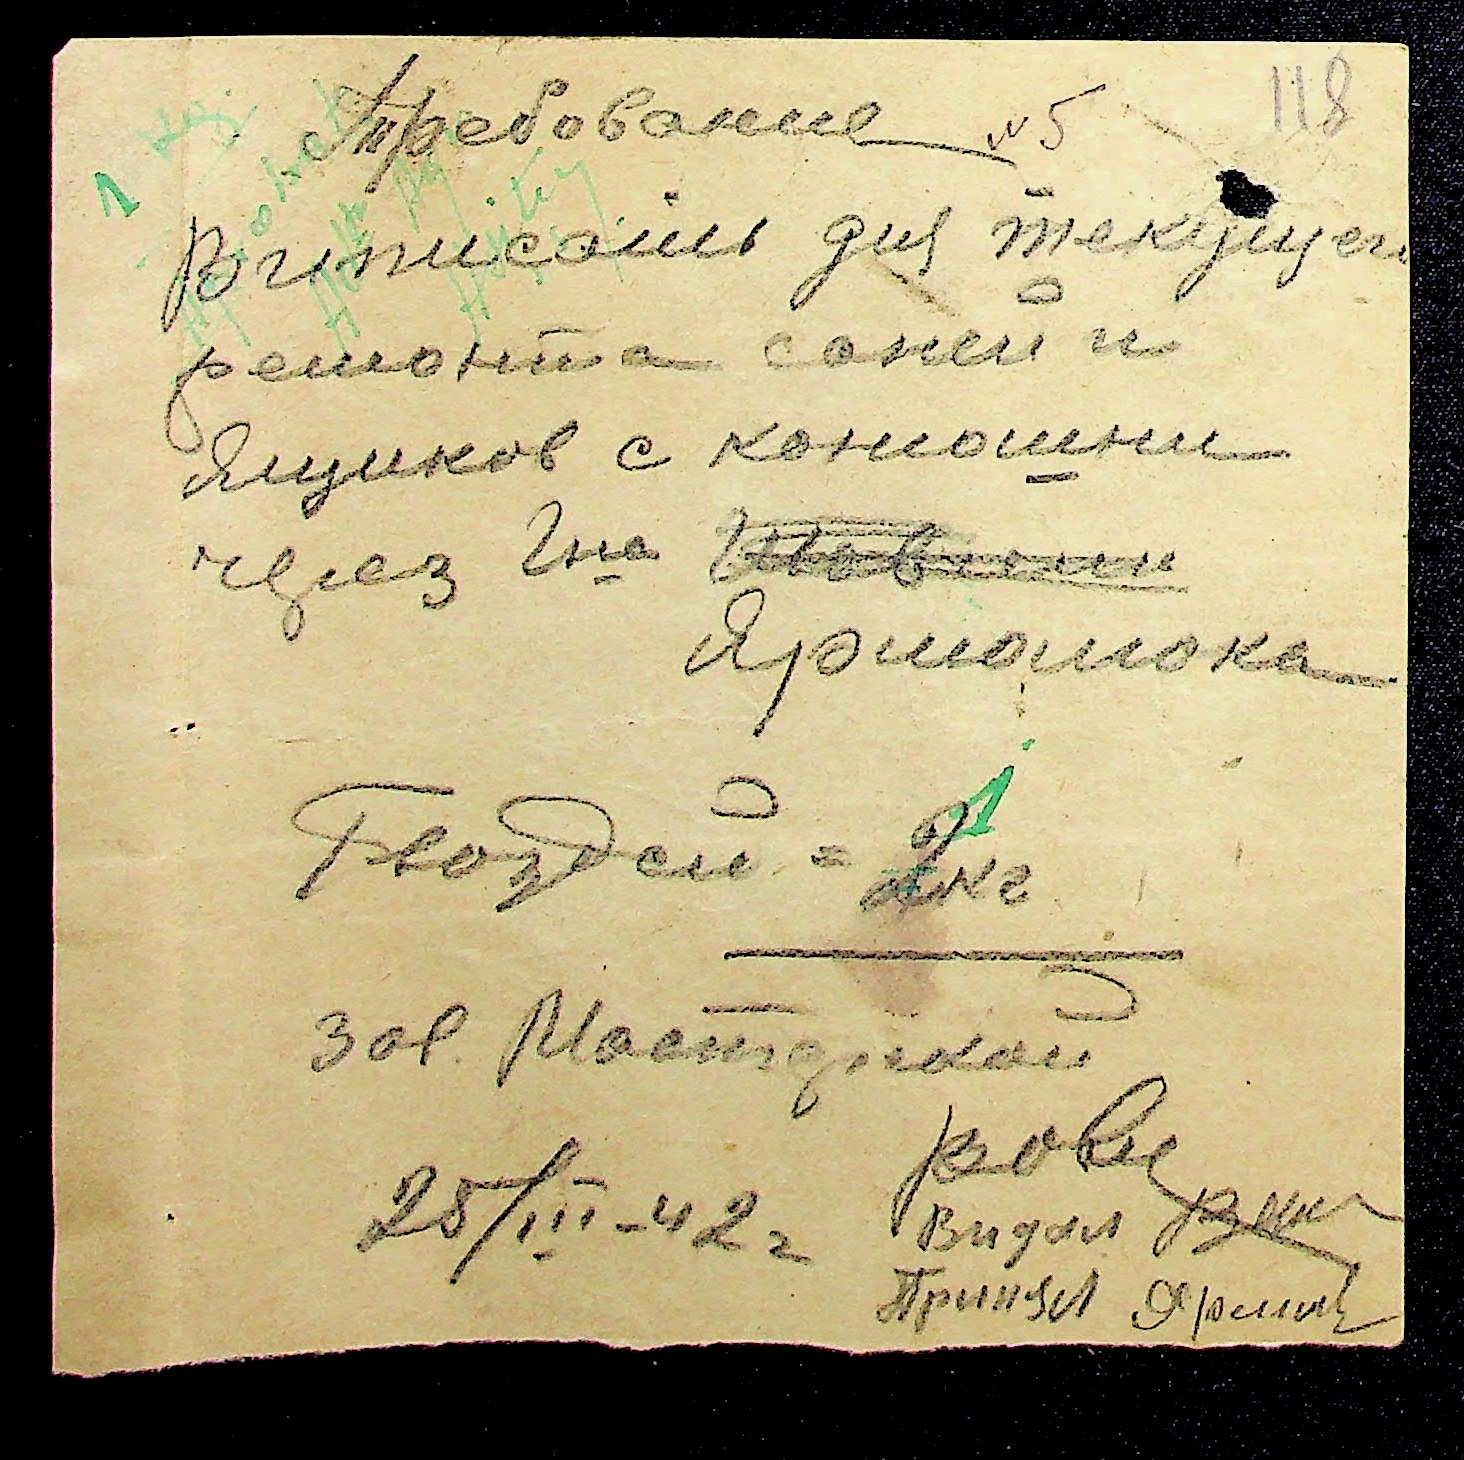 118
Требование № 5
Выписать для текущего
ремонта саней и
Ящиков с конюшни
через Гна
Ярмолюка
Гвоздей = 2кг
1
зав. Мастерской
25/III-42 г
Выдал
Принял Ярмол